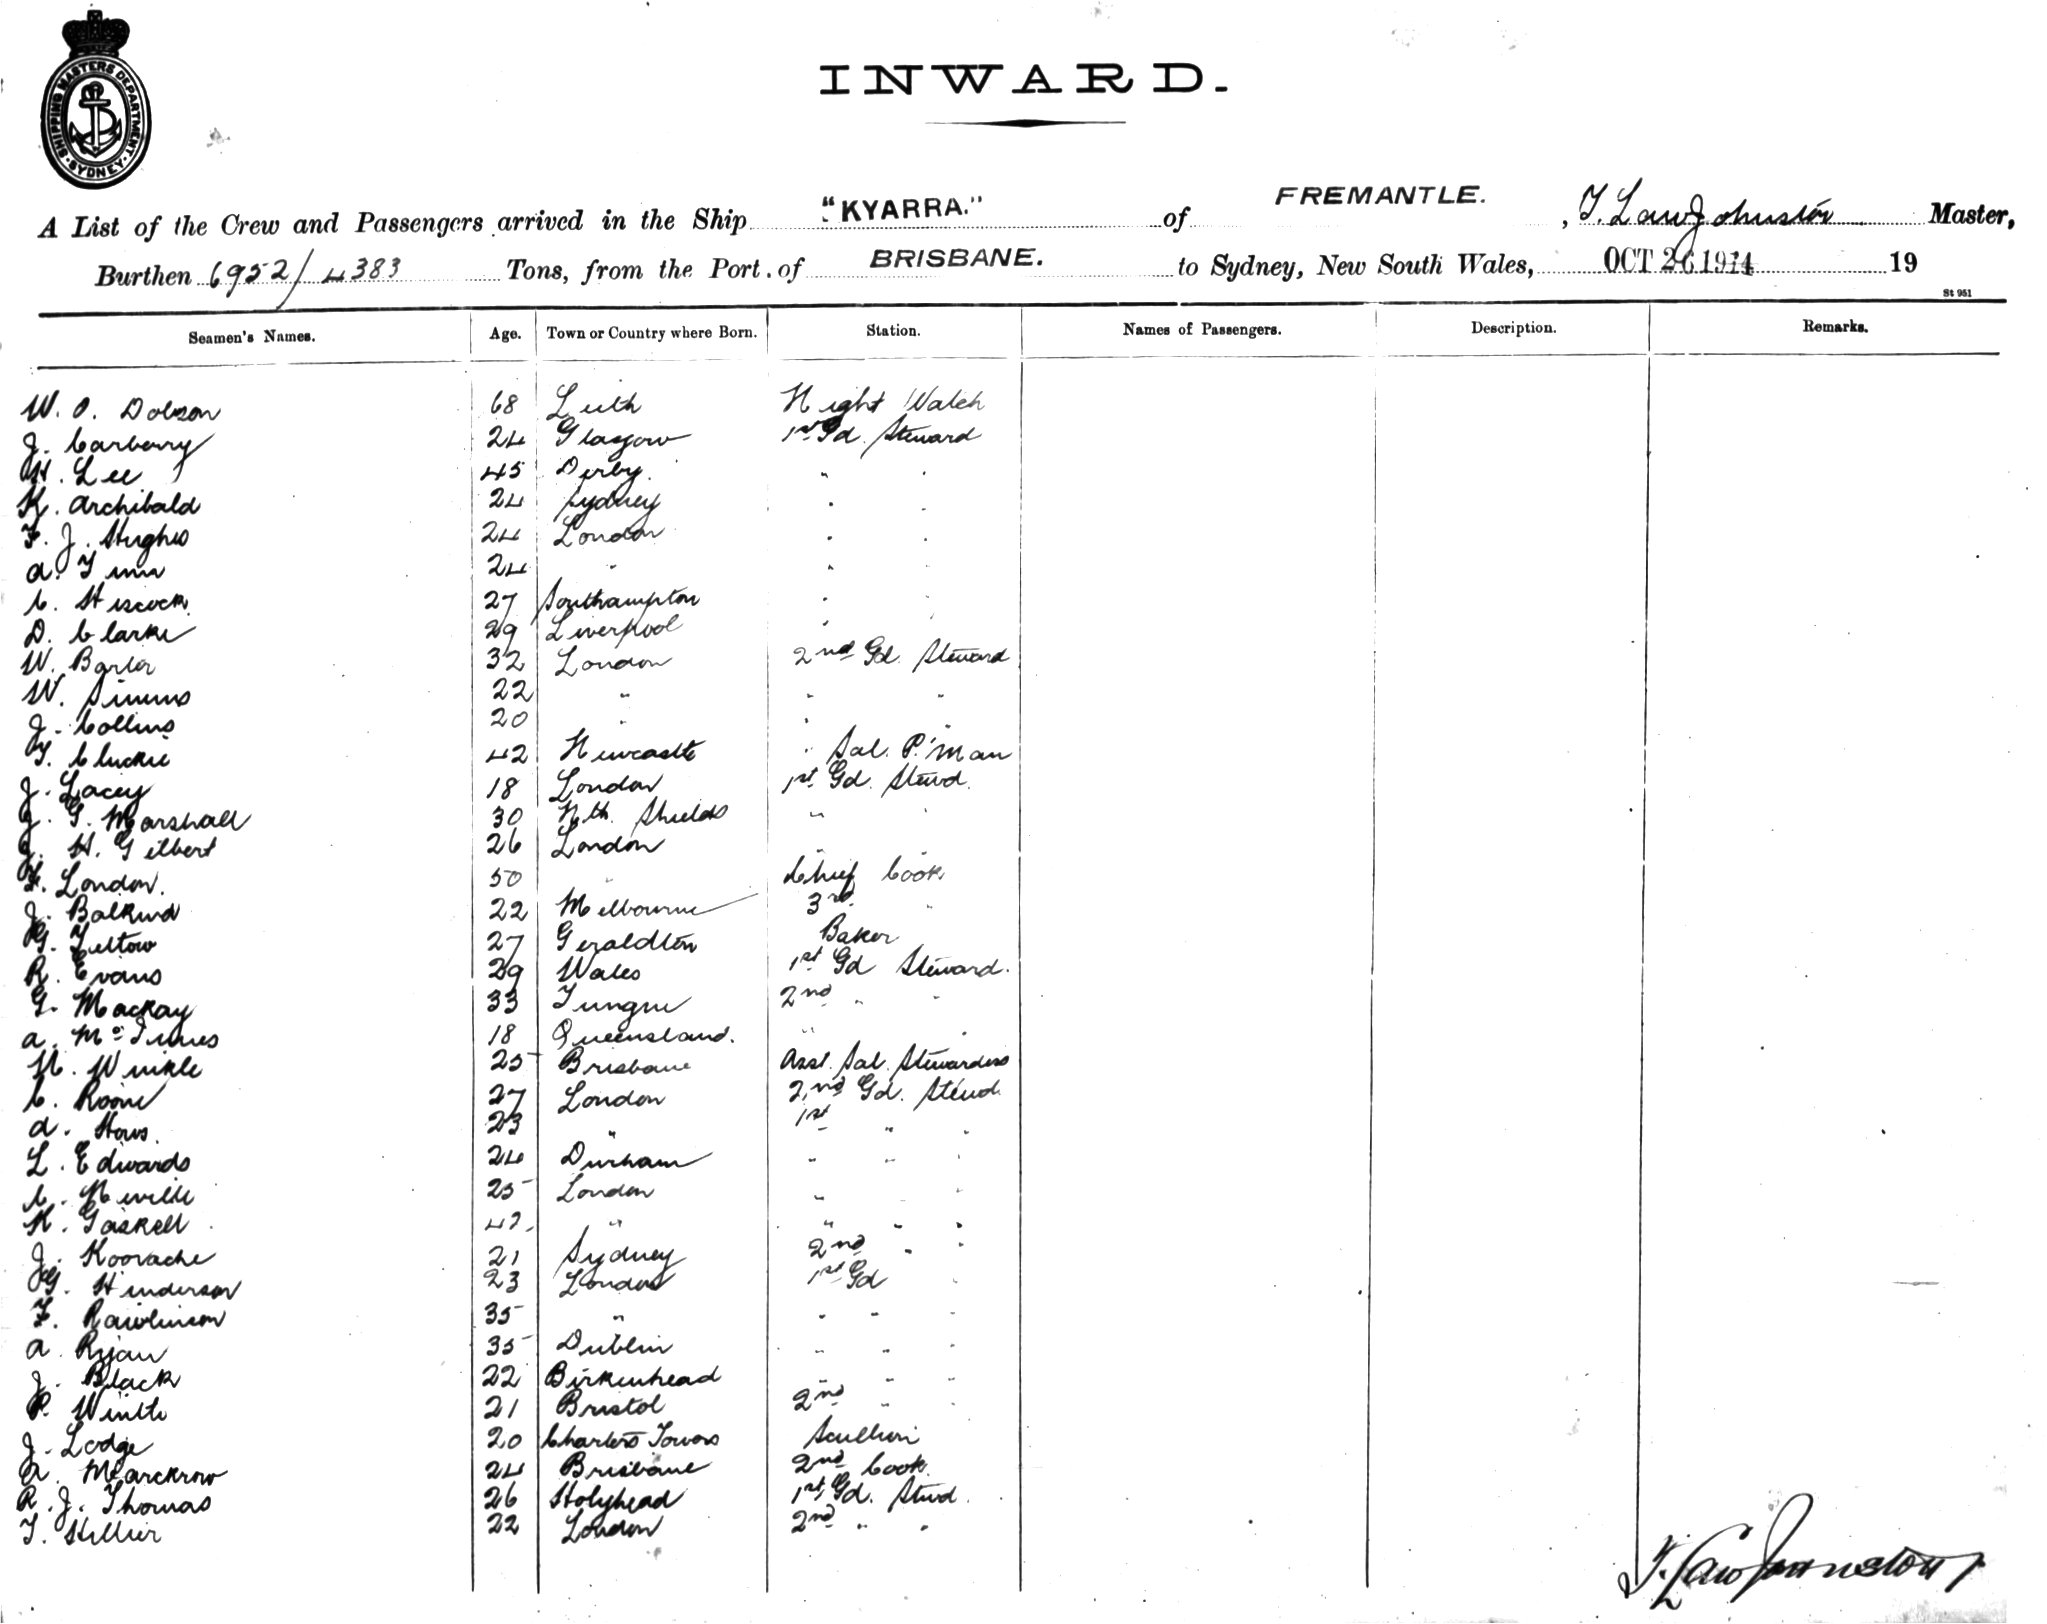 SHIPPING MASTERS DEPARTMENT. SYDNEY
INWARD.
A List of the Crew and Passengers arrived in the Ship "KYARRA." of FREMANTLE. , T. Law Johnston Master,
Burthen 6952/4383 Tons, from the Port of BRISBANE. to Sydney, New South Wales, OCT 26 1914 19
St 951
Seamen's Names. Age. Town or Country where Born. Station. Names of Passengers. Description. Remarks.
W. O. Dobson 68 Leith Night Watch
J. Carberry 24 Glasgow 1st Gd. Steward
H. Lee 45 Derby. " "
K. Archibald 24 Sydney " "
F. J. Hughes 24 London " "
A. 24 " " "
C. Hiscock. 27 Southampton " "
D. Clarke 29 Liverpool "
W. 32 London 2nd Gd. Steward
W. Simms 22 " " "
J. Collins 20 " " "
T. Cluckie 42 Newcastle " Sal. P.'Man
J. Lacey 18 London 1st Gd. Stewd.
J. G. Marshall 30 Nth. Shields " "
J. H. Gilbert 26 London " "
F. London. 50 " Chief Cook
J. Balkind 22 Melbourne 3rd "
G. 27 Geraldton Baker
R. Evans 29 Wales 1st Gd Steward.
G. Mackay 33 Tongue 2nd " "
A. McInnes 18 Queensland. " "
N. Winkle 25 Brisbane Asst. Sal. Stewardess
C. 27 London 2nd Gd. Stewd.
A. Hows. 23 " 1st " "
L. Edwards 24 Durham " " "
C. Neville 25 London " "
K. Gaskell 42. " " " "
J. Koorache 21 Sydney 2nd " "
G. Henderson 23 London 1st Gd "
F. Rawlinson 35 " " " "
A. Ryan 35 Dublin " " "
J. Black 22 Birkenhead " " "
P. 21 Bristol 2nd " "
J. Lodge 20 Charters Towers Scullion
A. Marckrow 24 Brisbane 2nd Cook.
R. J. Thomas 26 Holyhead 1st Gd. Stwd.
T. Hillier 22 London 2nd " "
T. Law Johnston